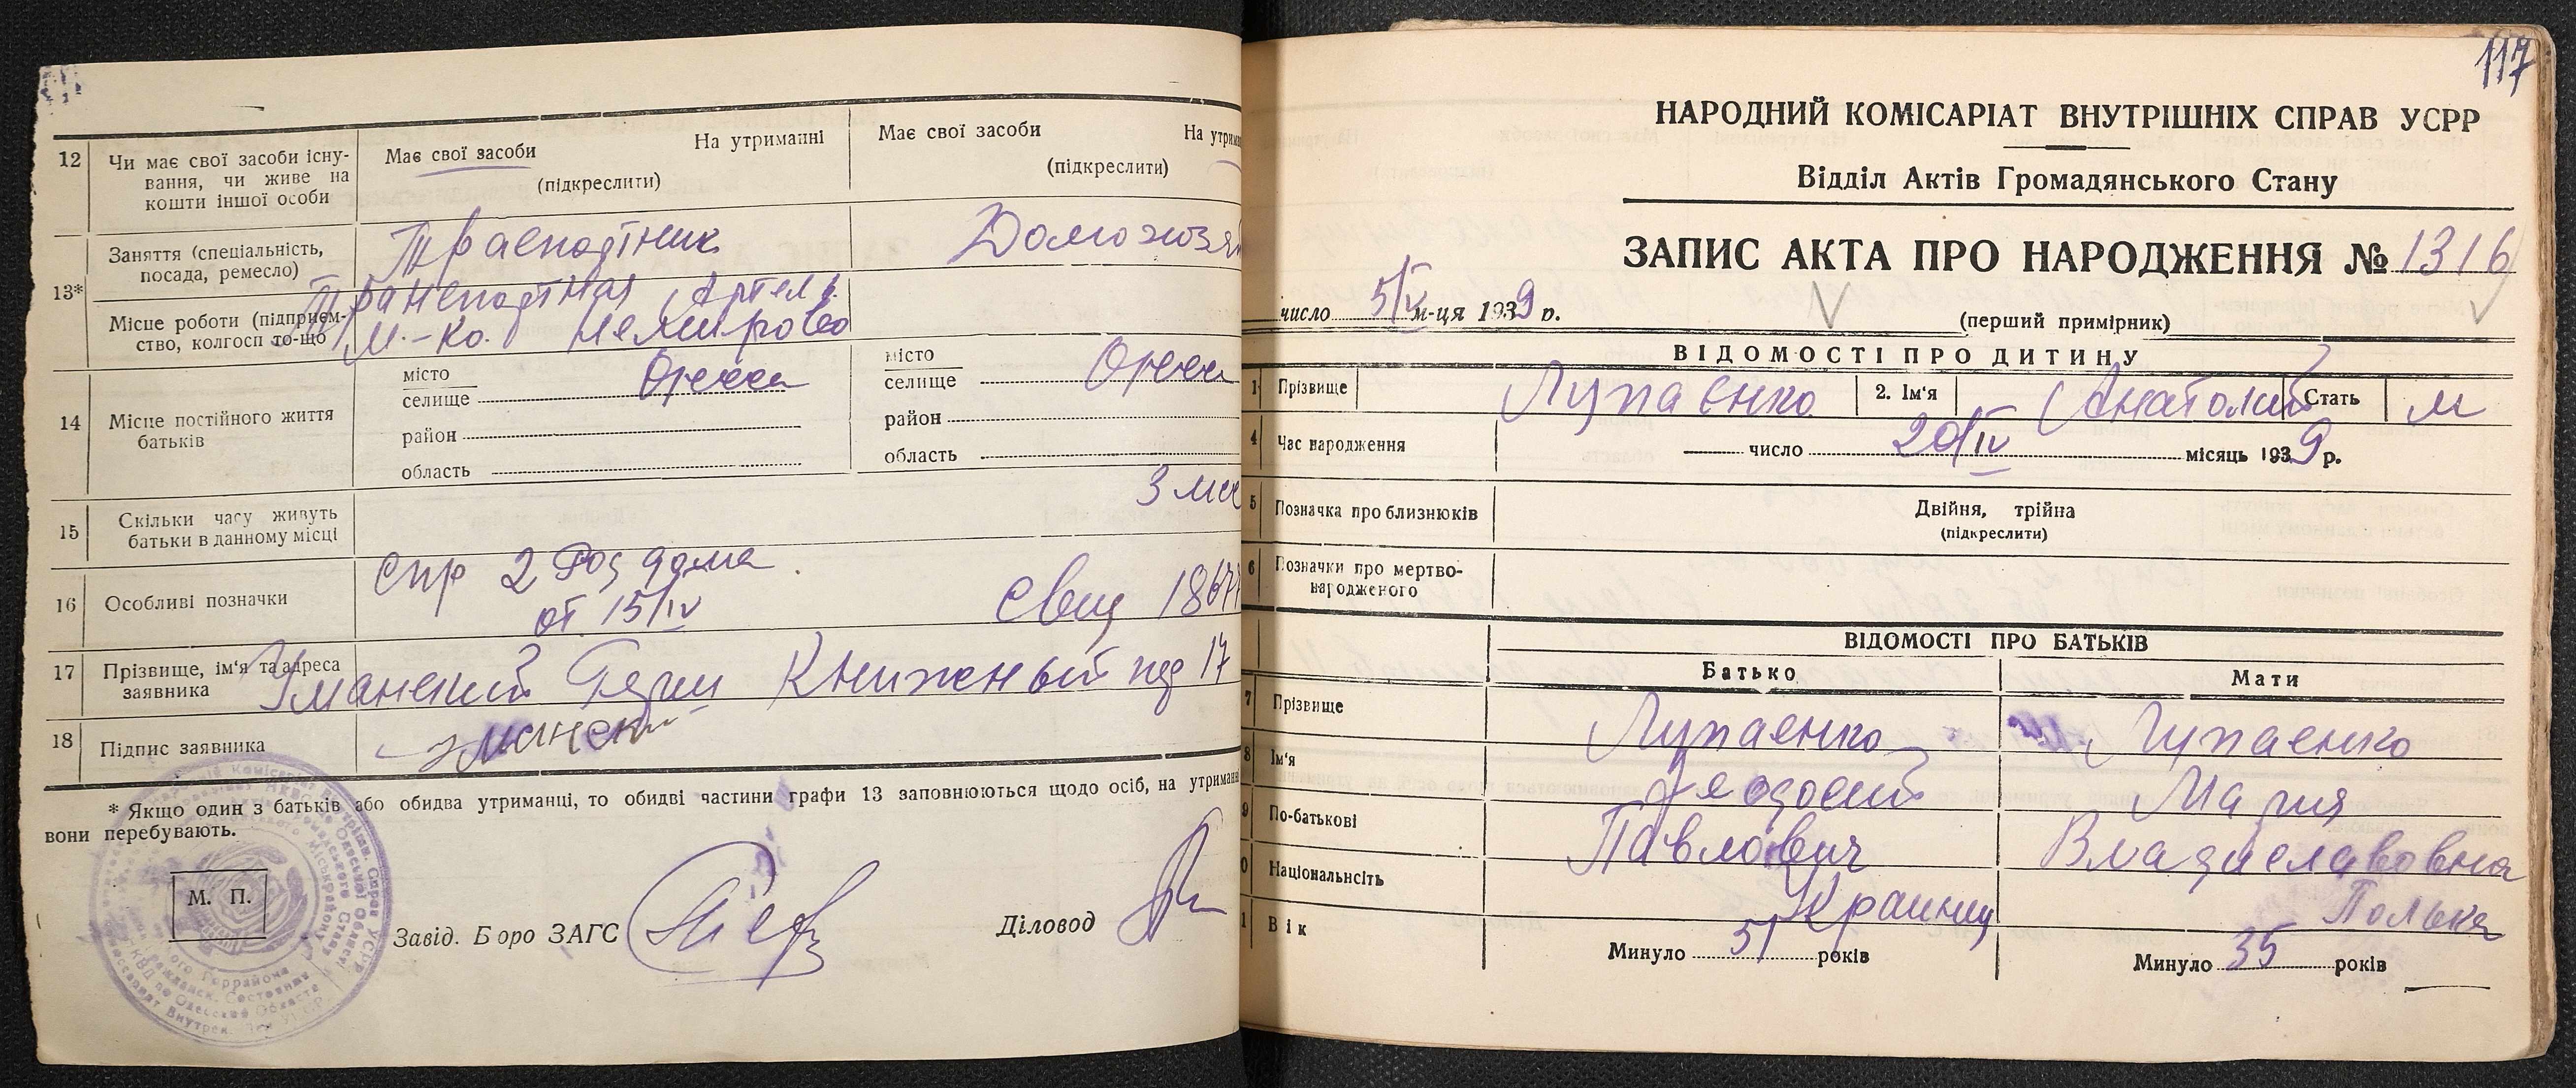 12 Чи має свої засоби існу-
вання, чи живе на
кошти іншої особи
Має свої засоби На утриманні
(підкреслити)
Має свої засоби На утрим
(підкреслити)
13*
Заняття (спеціальність,
посада, ремесло)
Домохозяй
Місце роботи (підприєм-
ство, колгосп то-що
Артель
14 Місце постійного життя
батьків
місто
селище Одесса
район
область
місто
селище Одесса
район
область
15 Скільки часу живуть
батьки в данному місці
3 мес
16 Особливі позначки
спр 2 Род дома
от 15/IV
свид 1867
17 Прізвище, ім'я та адреса
заявника
Уманский Книжный пер 17
18 Підпис заявника
* Якщо один з батьків або обидва утриманці, то обидві частини графи 13 заповнюються щодо осіб, на утриманні
вони перебувають.
М. П.
Завід. Бюро ЗАГС
Діловод
117
НАРОДНИЙ КОМІСАРІАТ ВНУТРІШНІХ СПРАВ УСРР
Відділ Актів Громадянського Стану
ЗАПИС АКТА ПРО НАРОДЖЕННЯ № 1316
число 5/V м-ця 1939 р.
(перший примірник)
ВІДОМОСТІ ПРО ДИТИНУ
1 Прізвище Лупаенко 2. Ім'я Анатолий Стать м
4 Час народження число 20/IV місяць 1939 р.
5 Позначка про близнюків Двійня, трійна
(підкреслити)
6 Позначки про мертво-
народженого
ВІДОМОСТІ ПРО БАТЬКІВ
Батько Мати
7 Прізвище Лупаенко Лупаенко
8 Ім'я Феодосий Мария
9 По-батькові Павлович Владиславовна
0 Національність Украинец Полька
1 Вік Минуло 51 років Минуло 35 років